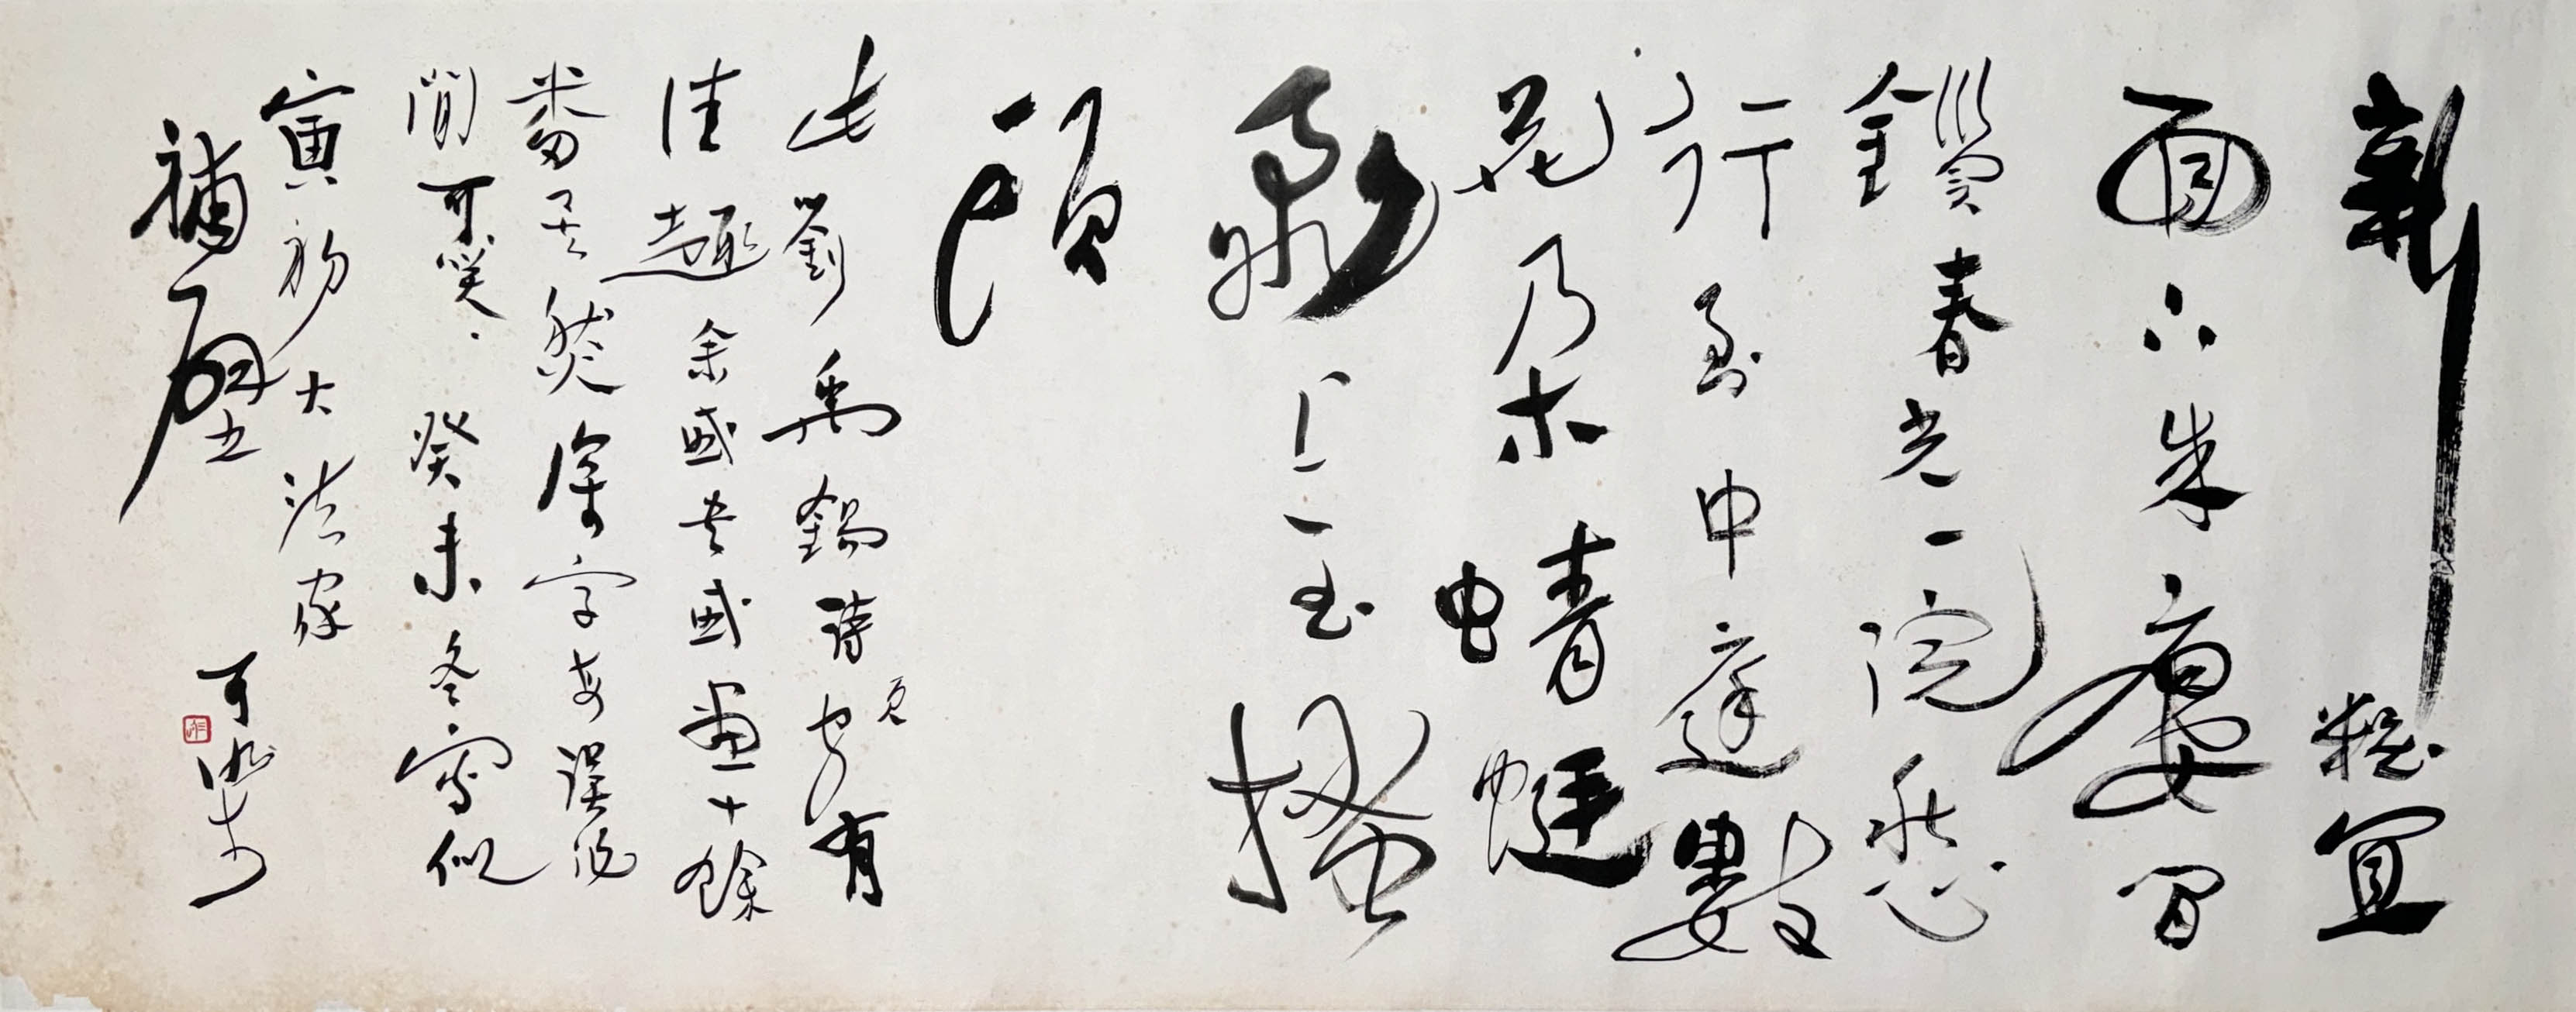 新粧宜
面下朱廔間
鎖春光一院愁
行到中庭數
花朵蜻蜓
飛上玉搔
頭
此劉禹錫詩有
佳趣余或書或畫十餘
番然深字誤
間可笑癸未冬寫似
寅初大法家
補壁
可